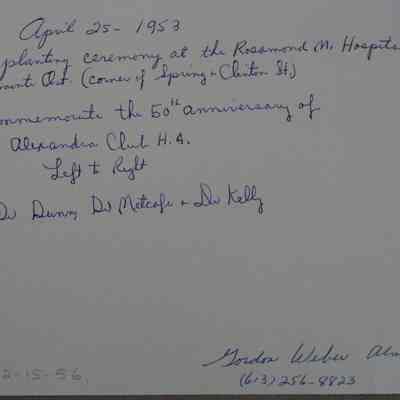 April 25 - 1953
planting ceremony at the Rosamond M. Hospita
Ont. (corner of Spring & Clinton St.)
the 50th anniversary of
Alexandra Club H.A.
Left to Right
Dr Dunn, Dr Metcalfe & Dr Kelly
Gordon Weber
(613) 256-8823
2-15-56,